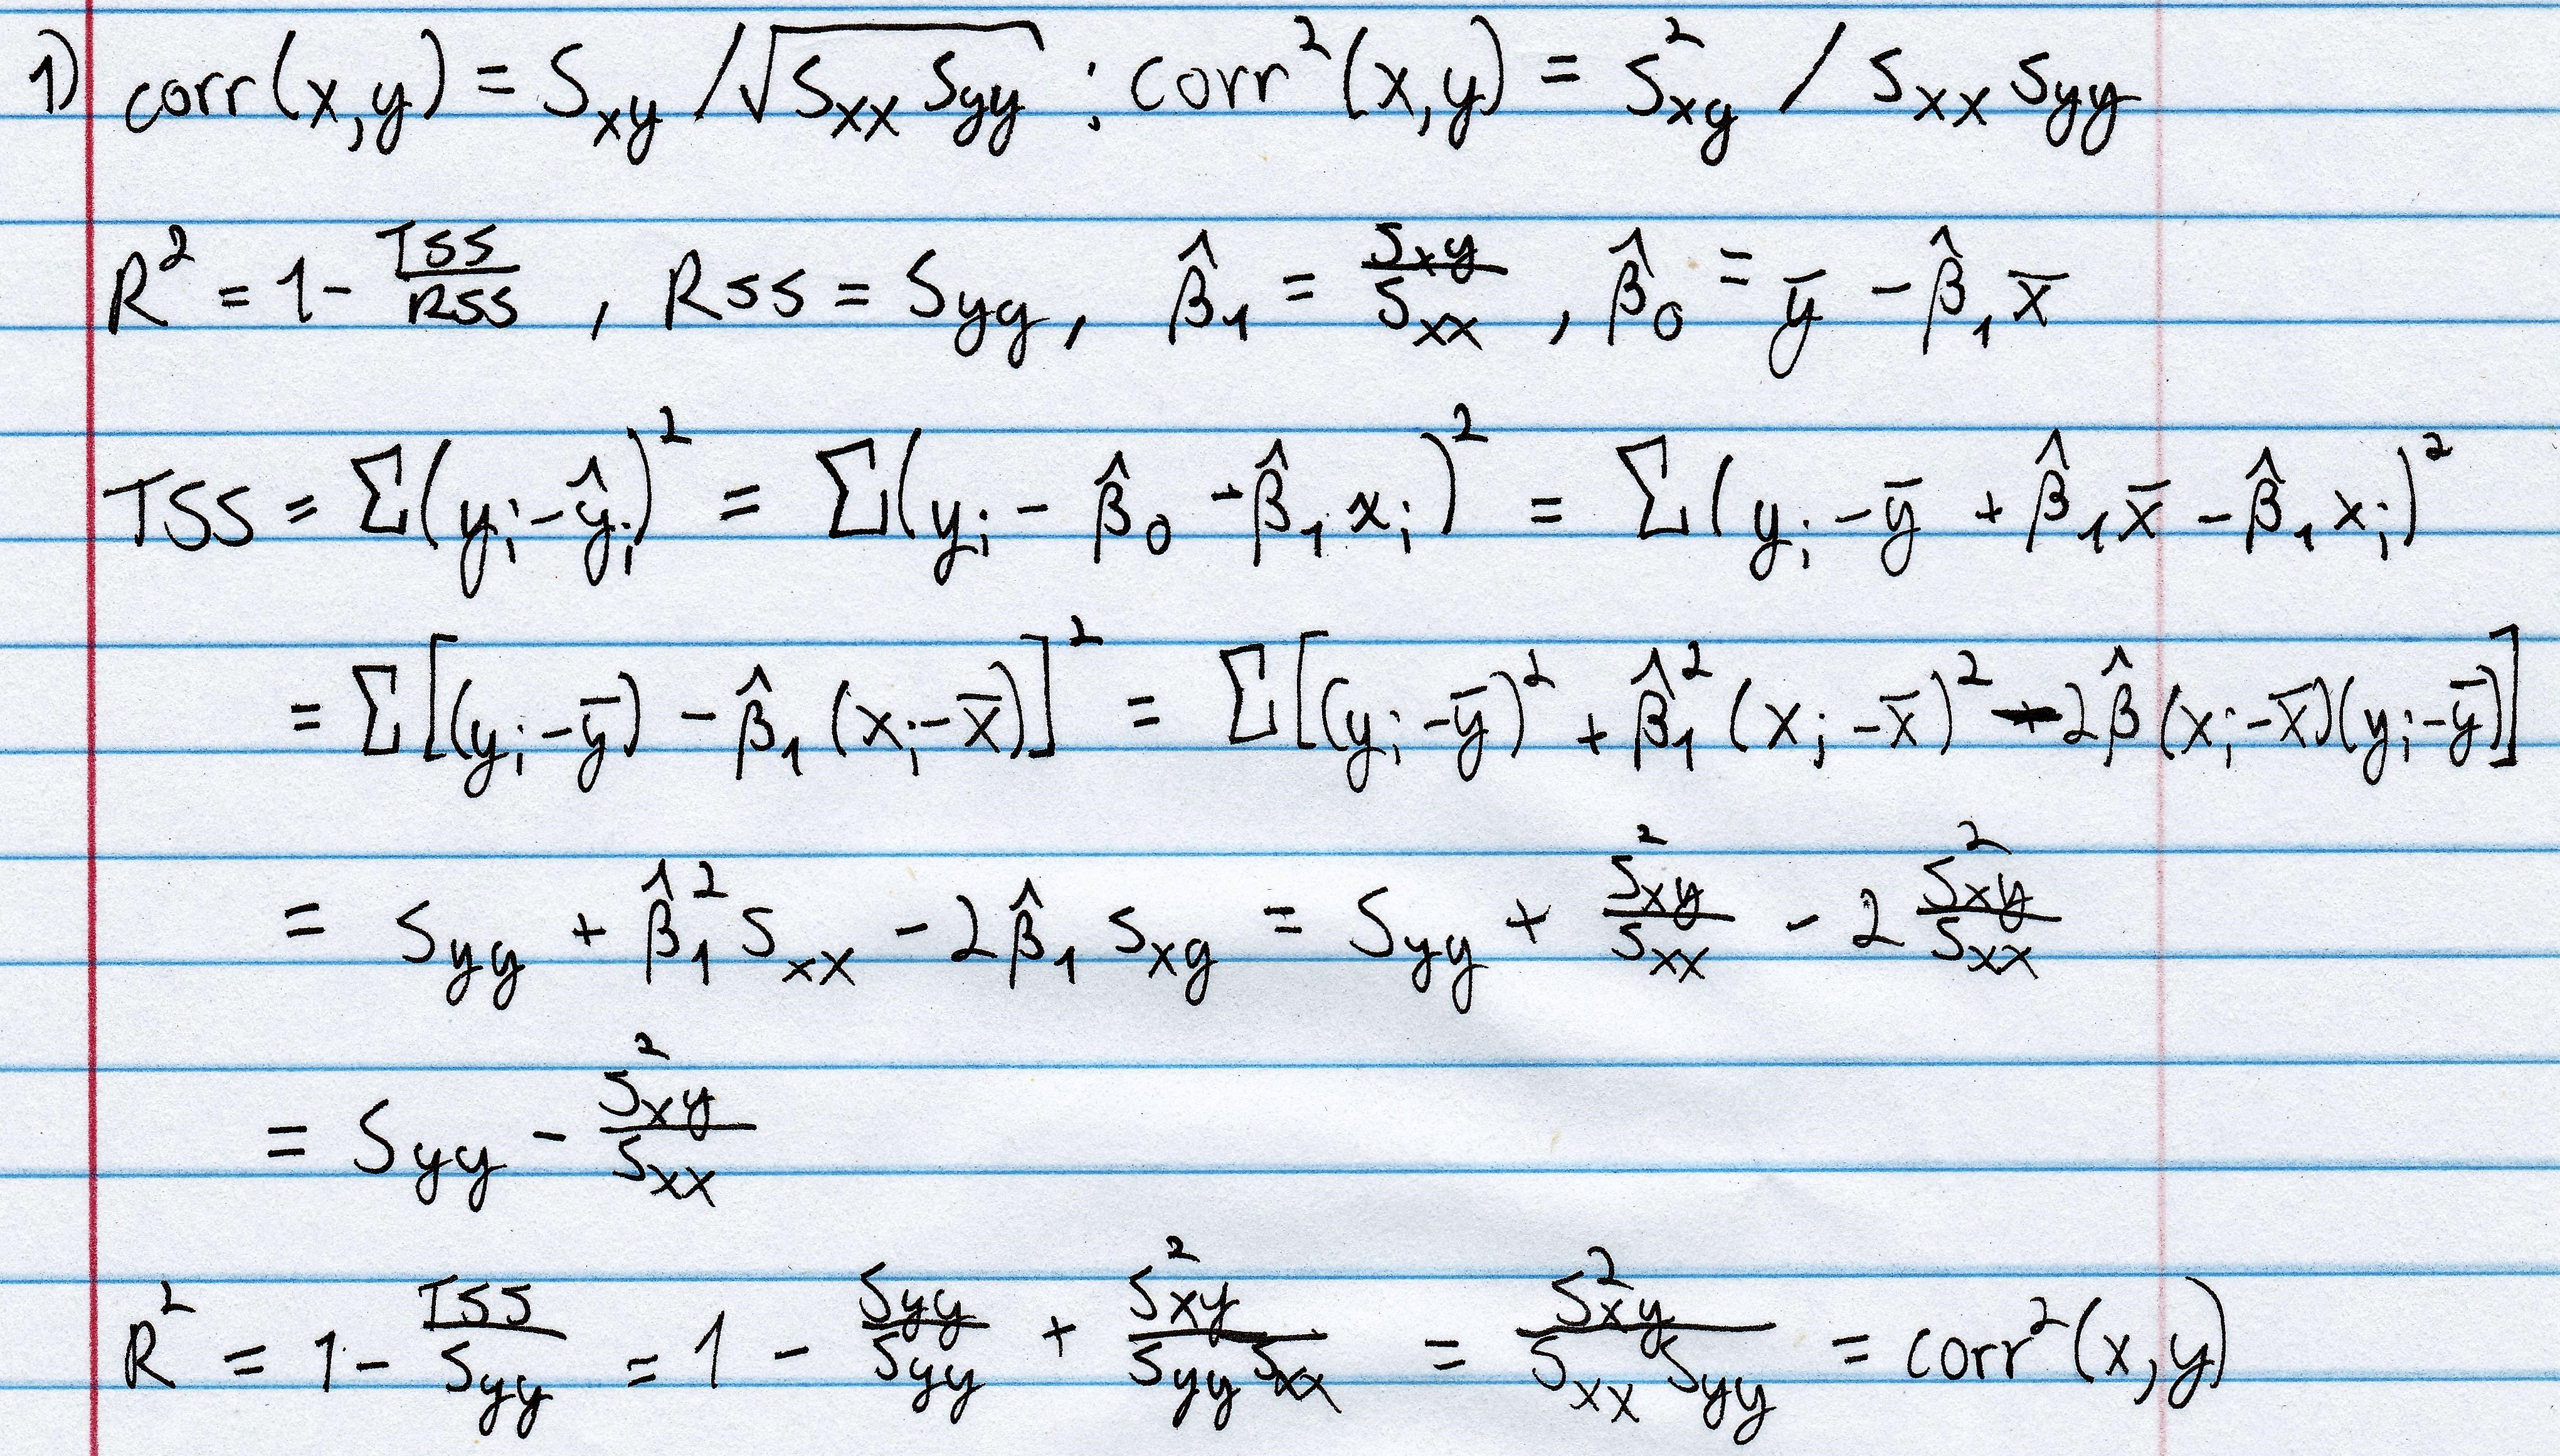 1) corr(x,y) = Sxy / √(Sxx Syy) ; corr²(x,y) = S²xy / Sxx Syy
R² = 1 - TSS/RSS , RSS = Syy, β̂₁ = Sxy/Sxx , β̂₀ = ȳ - β̂₁ x̄
TSS = Σ(yᵢ - ŷᵢ)² = Σ(yᵢ - β̂₀ - β̂₁ xᵢ)² = Σ(yᵢ - ȳ + β̂₁ x̄ - β̂₁ xᵢ)²
= Σ[(yᵢ - ȳ) - β̂₁ (xᵢ - x̄)]² = Σ[(yᵢ - ȳ)² + β̂₁² (xᵢ - x̄)² - 2β̂ (xᵢ - x̄)(yᵢ - ȳ)]
= Syy + β̂₁² Sxx - 2β̂₁ Sxy = Syy + S²xy/Sxx - 2 S²xy/Sxx
= Syy - S²xy/Sxx
R² = 1 - TSS/Syy = 1 - Syy/Syy + S²xy/(Syy Sxx) = S²xy/(Sxx Syy) = corr²(x,y)